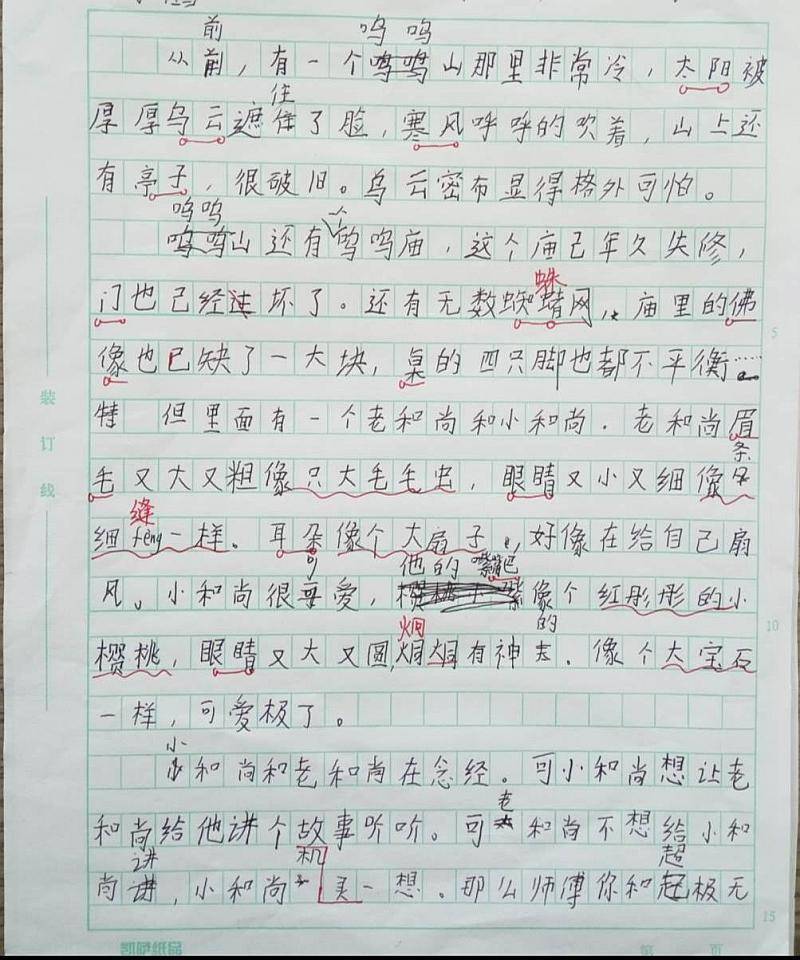 前 呜呜
从前，有一个呜呜山那里非常冷，太阳被
住
厚厚乌云遮住了脸，寒风呼呼的吹着，山上还
有亭子，很破旧。乌云密布显得格外可怕。
呜呜 个
呜呜山还有鸣鸣庙，这个庙已年久失修，
蛛
门也已经过坏了。还有无数蜘蜻网，庙里的佛
5
像也已缺了一大块，桌的四只脚也都不平衡……
装
特 但里面有一个老和尚和小和尚．老和尚眉
订
条
毛又大又粗像只大毛毛虫，眼睛又小又细像
线
缝
细fèng一样。耳朵像个大扇子，好像在给自己扇
可 他的 嘴巴
风，小和尚很可爱，像个红彤彤的小
10
炯 的
樱桃，眼睛又大又圆，炯炯有神，像个大宝石
一样，可爱极了。
小
小和尚和老和尚在念经。可小和尚想让老
老
和尚给他讲个故事听听。可 和尚不想给小和
讲 机 超
尚讲，小和尚灵一想。那么师傅你和起极无
15
凯萨纸品 第 页